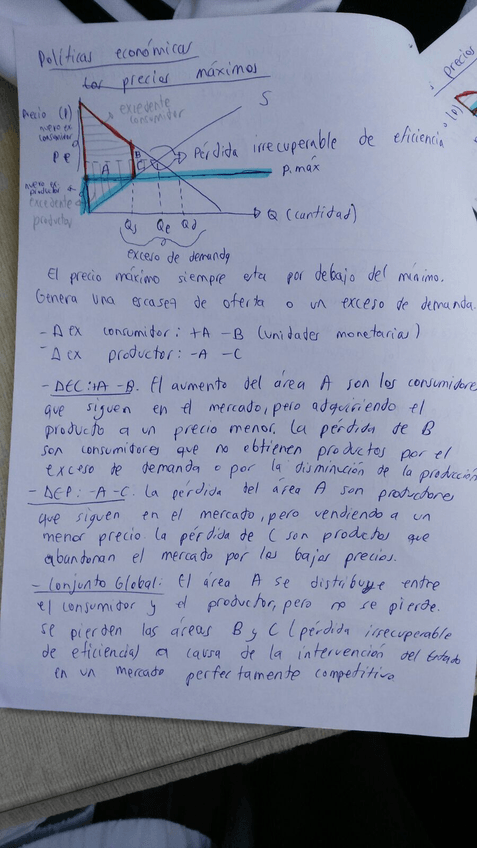 Políticas económicas
Los precios máximos
Precio (P)
nuevo ex
consumidor
excedente
consumidor
S
Pérdida irrecuperable de eficiencia
Pe
A
B
C
P. máx
nuevo ex
productor
excedente
productor
Qs Qe Qd
Q (cantidad)
exceso de demanda
El precio máximo siempre esta por debajo del mínimo.
Genera una escasez de oferta o un exceso de demanda.
- Δ ex consumidor: +A -B (unidades monetarias)
- Δ ex productor: -A -C
- ΔEC: +A -B. El aumento del área A son los consumidores
que siguen en el mercado, pero adquiriendo el
producto a un precio menor. La pérdida de B
son consumidores que no obtienen productos por el
exceso de demanda o por la disminución de la producción
- ΔEP: -A -C. La pérdida del área A son productores
que siguen en el mercado, pero vendiendo a un
menor precio. la pérdida de C son productos que
abandonan el mercado por los bajos precios.
- Conjunto Global: El área A se distribuye entre
el consumidor y el productor, pero no se pierde.
Se pierden las áreas B y C (pérdida irrecuperable
de eficiencia) a causa de la intervención del Estado
en un mercado perfectamente competitivo.
precios
(P)